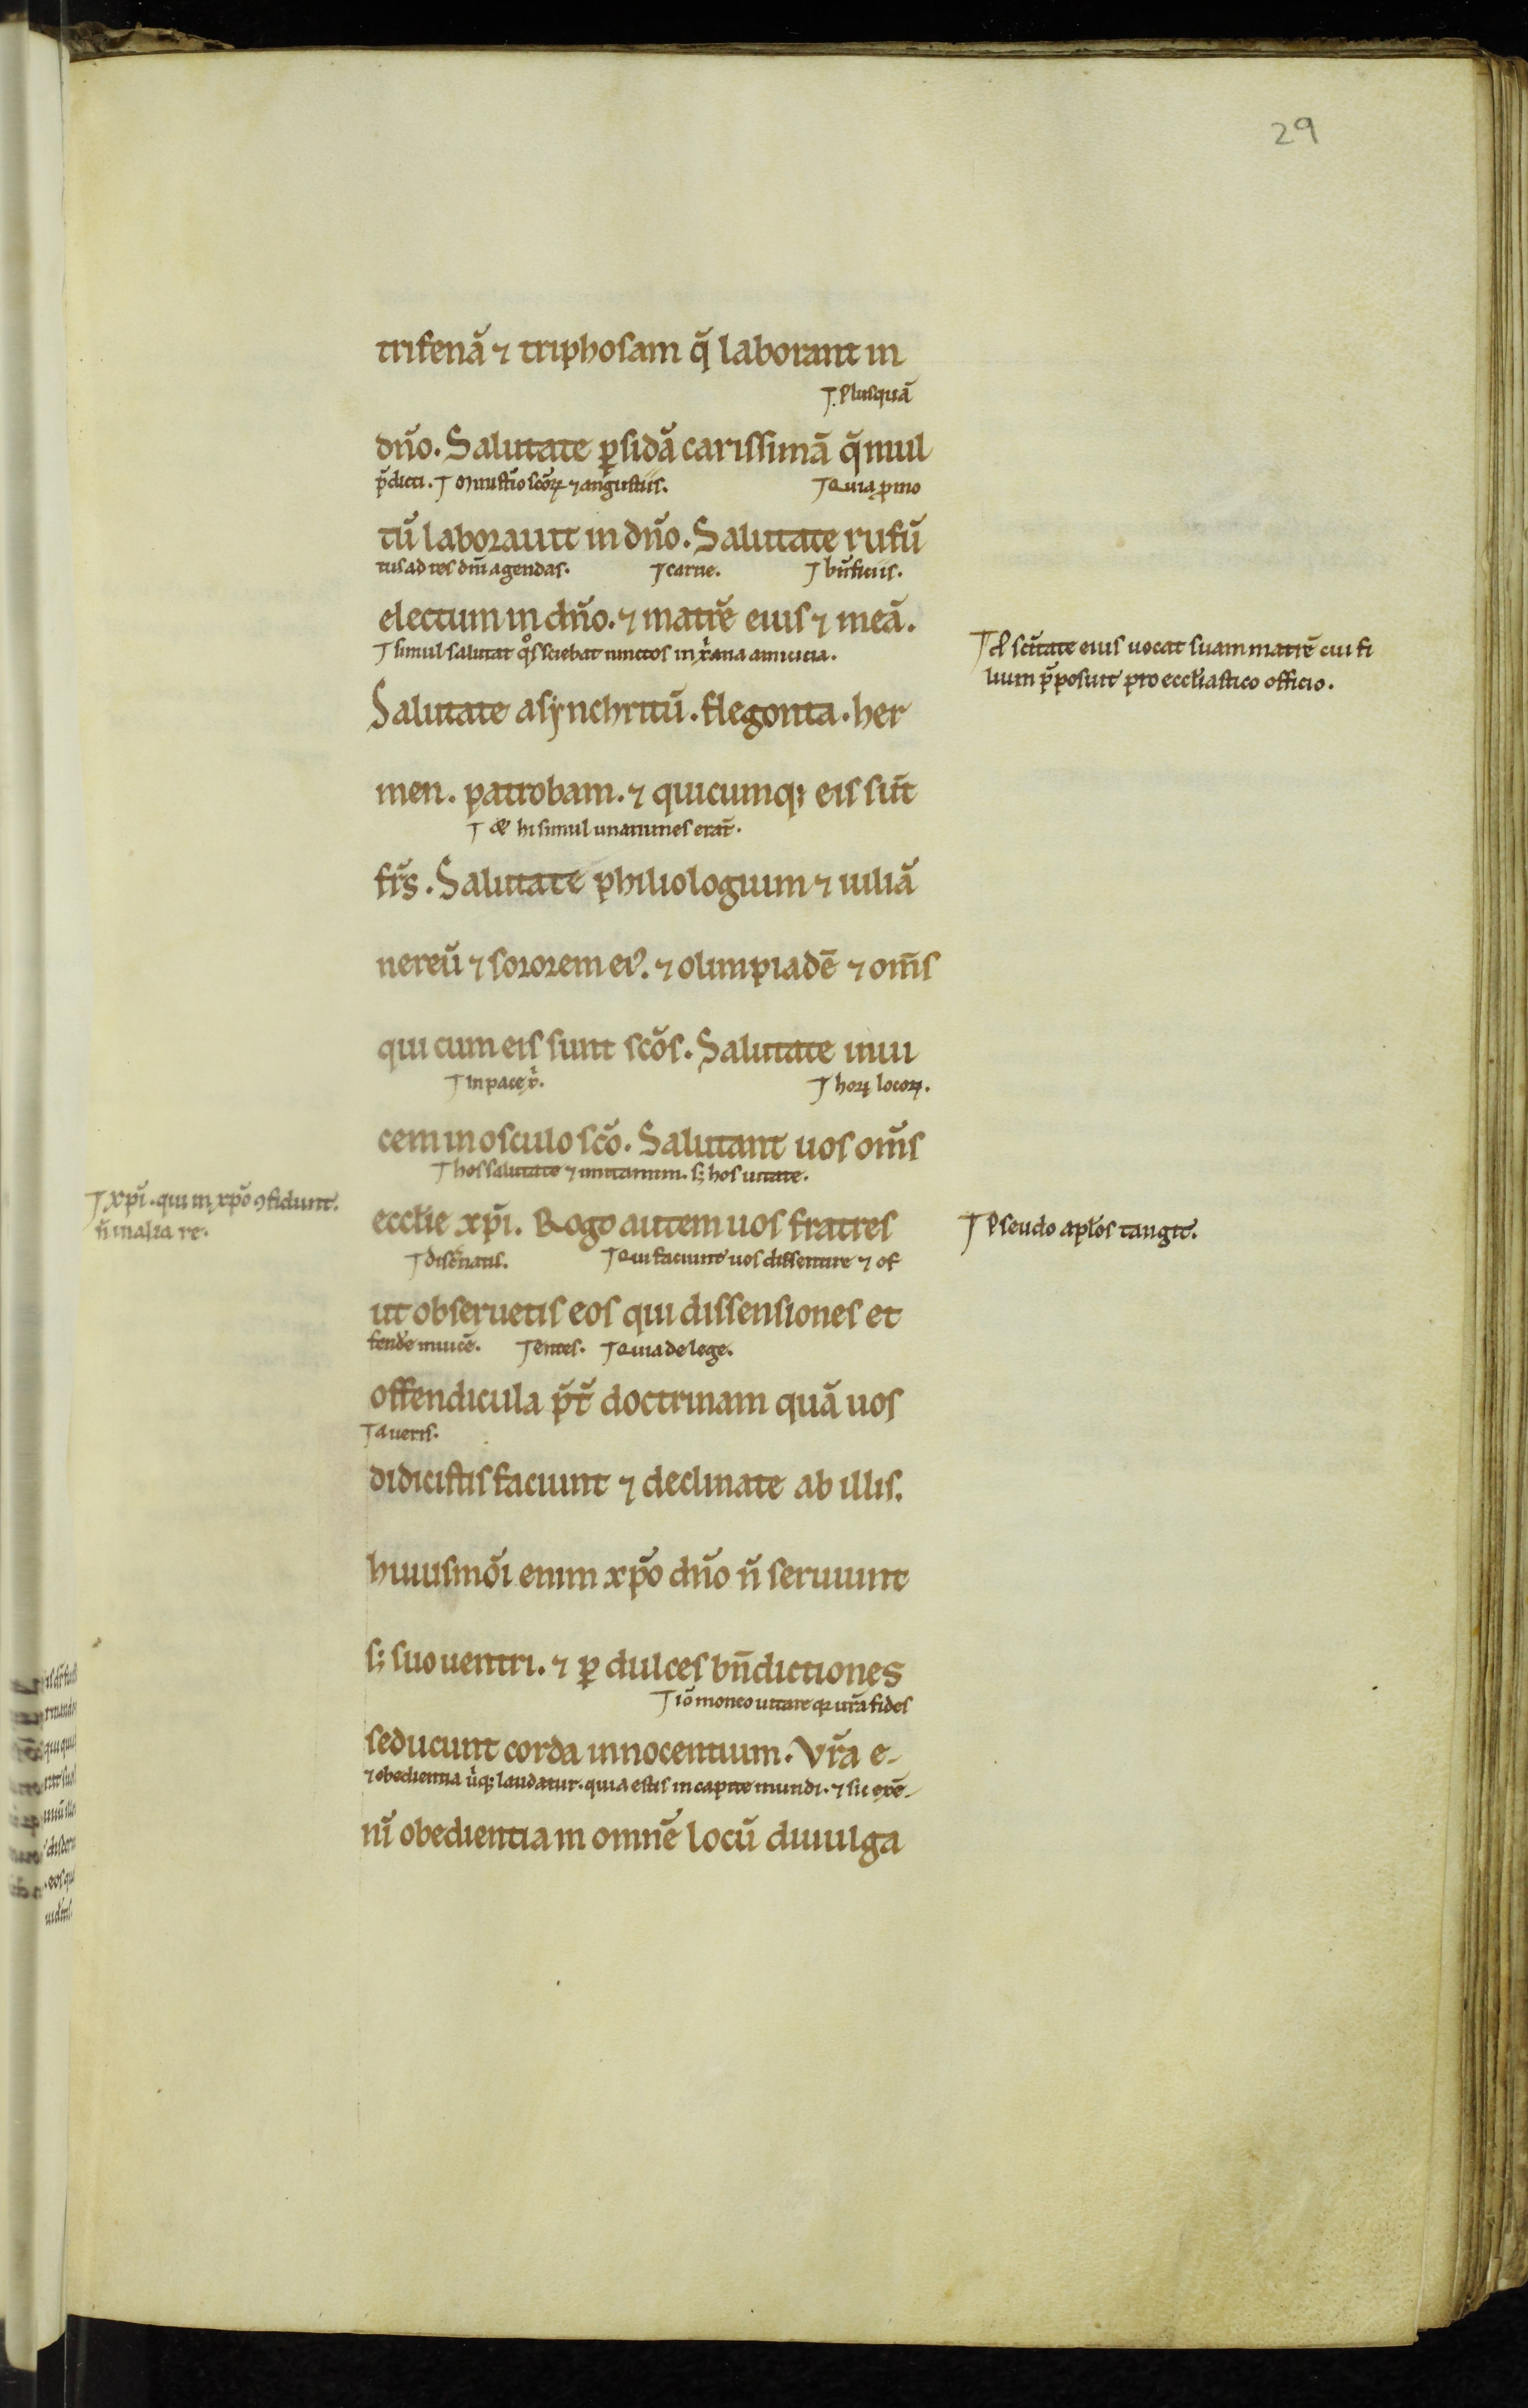 29
trifenā ⁊ triphosam q̄ laborant in
Plusquā
dn̄o. Salutate ꝑsidā carissimā q̄ mul
p̄dicti. Ministio sc̄oꝝ ⁊ angustiis. Quia ꝓmo
tū laborauit in dn̄o. Salutate rufū
tus ad res dn̄i agendas. carne. bn̄ficiis.
electum in dn̄o. ⁊ matrē eius ⁊ meā.
simul salutat q̊s sciebat iunctos in xr̄ana amicicia.
sc̄itate eius uocat suam matrē cui fi
lium p̄posuit pro eccl̄iastico officio.
Salutate asynchritū. flegonta. her
men. patrobam. ⁊ quicumqꝫ eis sūt
hi simul unanimes erāt.
fr̄s. Salutate philiologium ⁊ iuliā
nereū ⁊ sororem eiꝰ. ⁊ olimpiadē ⁊ om̄s
qui cum eis sunt sc̄os. Salutate inui
In pace horꝝ locorꝝ.
cem in osculo sc̄o. Salutant uos om̄s
hos salutate ⁊ imitamini. sꝫ hos uitate.
xp̄i. qui in xp̄o ꝯfidunt.
n̄ in alia re.
eccl̄ie xp̄i. Rogo autem uos fratres
Pseudo apl̄os tangit.
discernatis. Qui faciunt uos dissentire ⁊ of
ut obseruetis eos qui dissensiones et
fendē inuicē. entes. Quia de lege.
offendicula p̄t̄ doctrinam quā uos
a ueris.
didicistis faciunt ⁊ declinate ab illis.
huiusmōi enim xp̄o dn̄o n̄ seruiunt
sꝫ suo uentri. ⁊ ꝑ dulces bn̄dictiones
iō moneo uitare qꝛ ur̄a fides
seducunt corda innocentium. Vr̄a e-
⁊ obedientia laudatur. quia estis in capite mundi. ⁊ sic exē-
nī obedientia in omnē locū diuulga